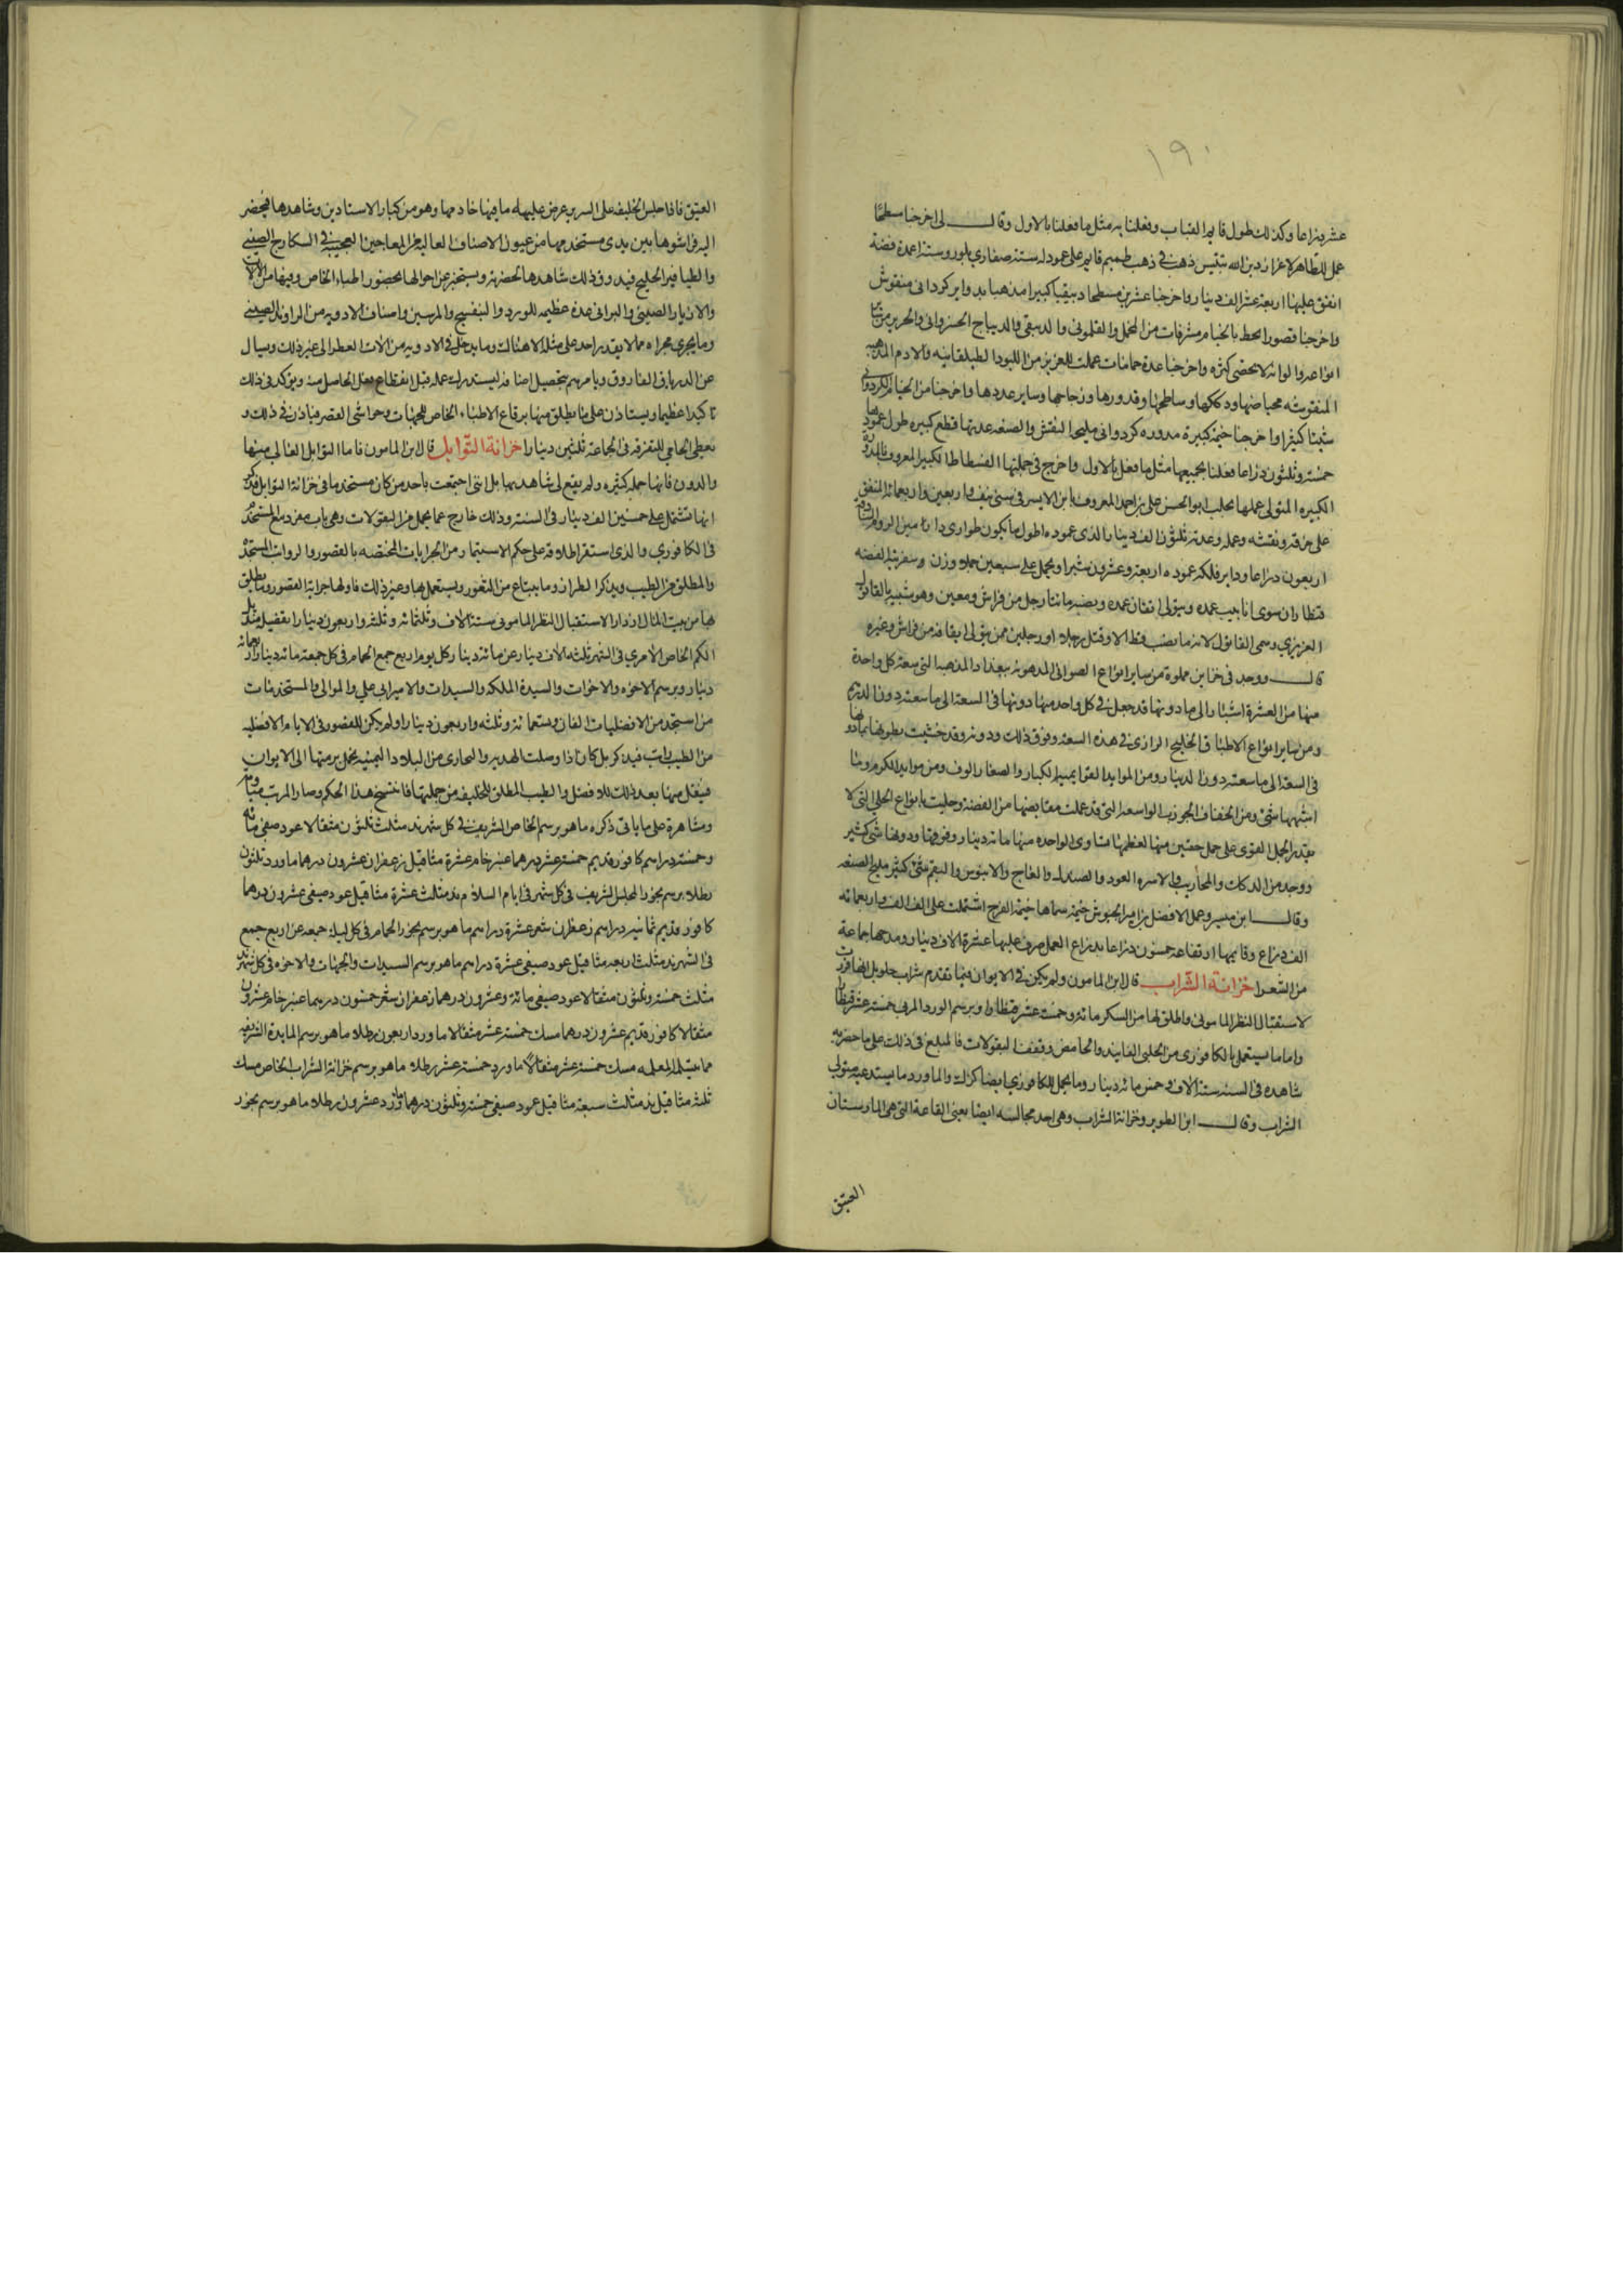 ١٩٠
عشر ذراعا وكذلك طول قايم القباب وفعلنا به مثل ما فعلنا بالاول وقال لى اخرجنا مسطحا
عمل للظاهر لاعزاز دين الله بتنيس ذهب فى ذهب طميم قايم على عمود له ستة صفارى بلور وستة اعمدة فضة
انفق عليها اربعة عشر الف دينار واخرجنا عشرين مسطحا دبيقيا كبيرا مذهبا بدواير كردوانى منقوش
واخرجنا قصور الحط بالخيام مشرفات من المخمل والقلمونى والدبيقى والديباج الخسروانى والحرير من ساير
انواعه والوانه لا يحصى كثرة واخرجنا عدة حمامات عملت للعزيز من اللبود الطيلقانيه والادم المذهبه
المنقوشه بحياضها ودككها ومساطحها وقدورها وزجاجها وساير عددها واخرجنا من الخيام الكردوانى
شيئا كثيرا واخرجنا خيمة كبيرة مدوره كردوانى مليحة النقش والصنعه عدتها قطع كبيره طول عمودها
خمسة وثلثون ذراعا فعلنا بجميعها مثل ما فعل بالاول واخرج فى جملتها الفسطاط الكبير المعروف بالمدورة
الكبيره المتولى عملها بحلب ابو الحسن على بن احمد المعروف بابن الايسر فى سنى نيف واربعين واربعمائه المنفق
على خرقه ونقشه وعمله وعدته ثلثون الف دينار الذى عموده اطول ما يكون طوارى دانا من الروم
اربعون ذراعا وداير فلكة عموده اربعة وعشرون شبرا ويحمل على سبعين جملا ووزن وسفريته الفضه
قنطاران سوى انابيب عمده ويتولى اتقان عمده ونصبه مائتا رجل من فراش ومعين وهو شبيه بالقاتول
العزيزي وسمى القاتول لانه ما نصب قط الا وقتل رجلا او رجلين ممن يتولى ايقافه من فراش وغيره
قال ووجد فى خزاين مملوة من ساير انواع الصوانى المدهونه ببغداد المذهبه التى سعة كل واحدة
منها من العشرة اشبار الى ما دونها قد جعل فى كل واحد منها دونها فى السعة الى ما سعته دون الدرهم
ومن ساير انواع الاطباق الخليج الرازى فى هذه السعه وفوق ذلك ودونه وقد حشيت بطونها بما دونها
فى السعة الى ما سعته دون الدينار ومن الموايد القوايمية الكبار والصغار الوف ومن موايد الكرم وما
اشبهها شى ومن الخفاف الجوزيه الواسعه التى قد عملت مقابضها من الفضة وحليت بانواع الحلى التى لا
يقدر الجمل القوى على حمل جفنتين منها لعظمها تساوى الواحده منها مائة دينار وفوقها ودونها شى كثير
ووجد من الدكك والمحاريب والاسره العود والصندل والعاج والابنوس والبقم شى كثير مليح الصنعه
وقال ابن ميسر وعمل الافضل بن امير الجيوش خيمة سماها خيمة الفرح اشتملت على الف الف واربعمائه
الف ذراع وقايمها ارتفاعه خمسون ذراعا بذراع العمل صرف عليها عشرة الاف دينار ومدحها جماعة
من الشعرا خزانة الشراب قال ابن المامون ولم يكن فى الايوان فيما تقدم شراب حلو بل انها قررت
لاستقبال النظر المامونى واطلق لها من السكر مائة وخمسة عشر قنطارا وبرسم الورد المربى خمسة عشر قنطارا
واما ما يستعمل بالكافورى من الحلو الفانيذ والحامض وقفف البقولات فالمبلغ فى ذلك على ما حضر به
شاهده فى السنه ستة الاف وخمس مائة دينار وما يحمل للكافورى ايضا كذلك والماورد ما يستدعيه متولى
الشراب وقال ابن الطوير وخزانة الشراب وهى احد مجالسه ايضا يعنى القاعة التى هى المارستان
العتيق
العتيق فاذا جلس الخليفه على السرير عرض عليه ما فيها خادمها وهو من كبار الاستادين وشاهدها فيحضر
اليه فراشوها بين يدى مستخدمها من عيون الاصناف العاليه من المعاجين العجيبة فى السكارج الصينى
والطيافير الخليج فيذوق ذلك شاهدها بحضرته ويستخبره عن احوالها بحضور اطباء الخاص وفيها من الالات
والازيار الصينى والبرانى عدة عظيمه للورد والبنفسج والمرسين واصناف الادويه من الراوند الصينى
وما يجرى مجراه مما لا يقدر احد على مثله الا هناك وما يدخل فى الادويه من الات العطر الى غير ذلك ويسال
عن الدرياق الفاروق ويامرهم بتحصيل اصنافه ليستدرك عمله قبل انقطاع الحاصل منه ويوكد فى ذلك
تاكيدا عظيما ويستاذن على ما يطلق منها برقاع الاطباء الخاص للجهات وحواشى القصر فياذن فى ذلك و
يعطى الحامى للتفرقه فى الجماعة ثلثين دينارا خزانة التوابل قال ابن المامون فاما التوابل العالى منها
والدون فانها جمله كثيره ولم يقع لى شاهد بها بل اننى اجتمعت باحد من كان مستخدما فى خزانة التوابل فذكر
انها تشتمل على خمسين الف دينار فى السنه وذلك خارج عما يحمل من البقولات وهى باب مفرد مع المستخدم
فى الكافورى والذى استقر اطلاقه على حكم الاستيمار من الجرايات المختصه بالقصور والرواتب المستجده
والمطلق من الطيب ويذكر الطراز وما يبتاع من الثغور ويستعمل بها وغير ذلك فاولها جراية القصور وما يطلق
لها من بيت المال ادرارا لاستقبال النظر المامونى ستة الاف وثلثمائه وثلثه واربعون دينارا تفصيله مندیل
الكم الخاص الآمري فى الشهر ثلثه الاف دينار عن مائة دينار كل يوم اربع جمع الحمام فى كل جمعة مائة دينار اربعمائه
دينار وبرسم الاخوه والاخوات والسيدة الملكه والسيدات والامير ابى على والموالى والمستخدمات و
من استجد من الافضليات الفان وتسعمائة وثلثه واربعون دينارا ولم يكن للقصور فى الايام الافضليه
من الطيب راتب فيذكر بل كان اذا وصلت الهديه والنجاوى من البلاد اليمنيه تحمل برمتها الى الايوان
فينقل منها بعد ذلك للافضل والطيب المطلق للخليفه من جملتها فانفسخ هذا الحكم وصار المرتب مياومه
ومشاهرة على ما ياتى ذكره ما هو برسم الخاص الشريف فى كل شهر ند مثلث ثلثون مثقالا عود صيفى مائه
وخمسة دراهم كافور قديم خمسة عشر درهما عنبر خام عشرة مثاقيل زعفران عشرون درهما ماورد ثلثون
رطلا برسم بخور المجلس الشريف فى كل شهر فى ايام السلام ند مثلث عشرة مثاقيل عود صيفى عشرون درهما
كافور قديم ثمانيه دراهم زعفران شعر عشرة دراهم ما هو برسم بخور الحمام فى كل ليلة جمعه عن اربع جمع
فى الشهر ند مثلث اربعه مثاقيل عود صيفى عشرة دراهم ما هو برسم السيدات والجهات والاخوه فى كل شهر ند
مثلث خمسة وثلثون مثقالا عود صيفى مائة وعشرون درهما زعفران شعر خمسون درهما عنبر خام عشرون
مثقالا كافور قديم عشرون درهما مسك خمسة عشر مثقالا ماورد اربعون رطلا ما هو برسم المايدة الشريفه
مما يتسلمه المعلم مسك خمسة عشر مثقالا ماورد خمسة عشر رطلا ما هو برسم خزانة الشراب الخاص مسك
ثلثه مثاقيل ند مثلث سبعة مثاقيل عود صيفى خمسة وثلثون درهما ماورد عشرون رطلا ما هو برسم بخور